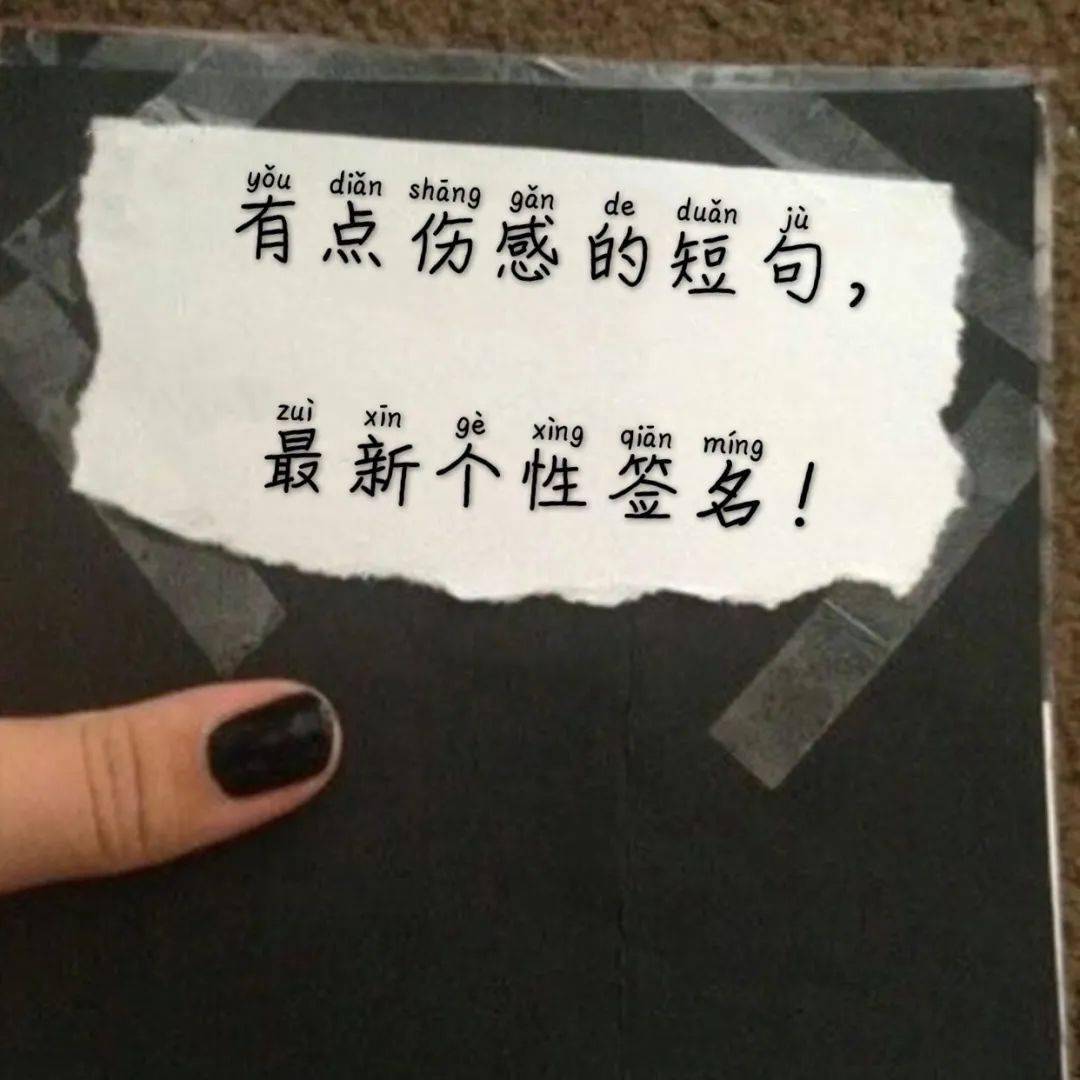 yǒu diǎn shāng gǎn de duǎn jù
有点伤感的短句，
zuì xīn gè xìng qiān míng
最新个性签名！